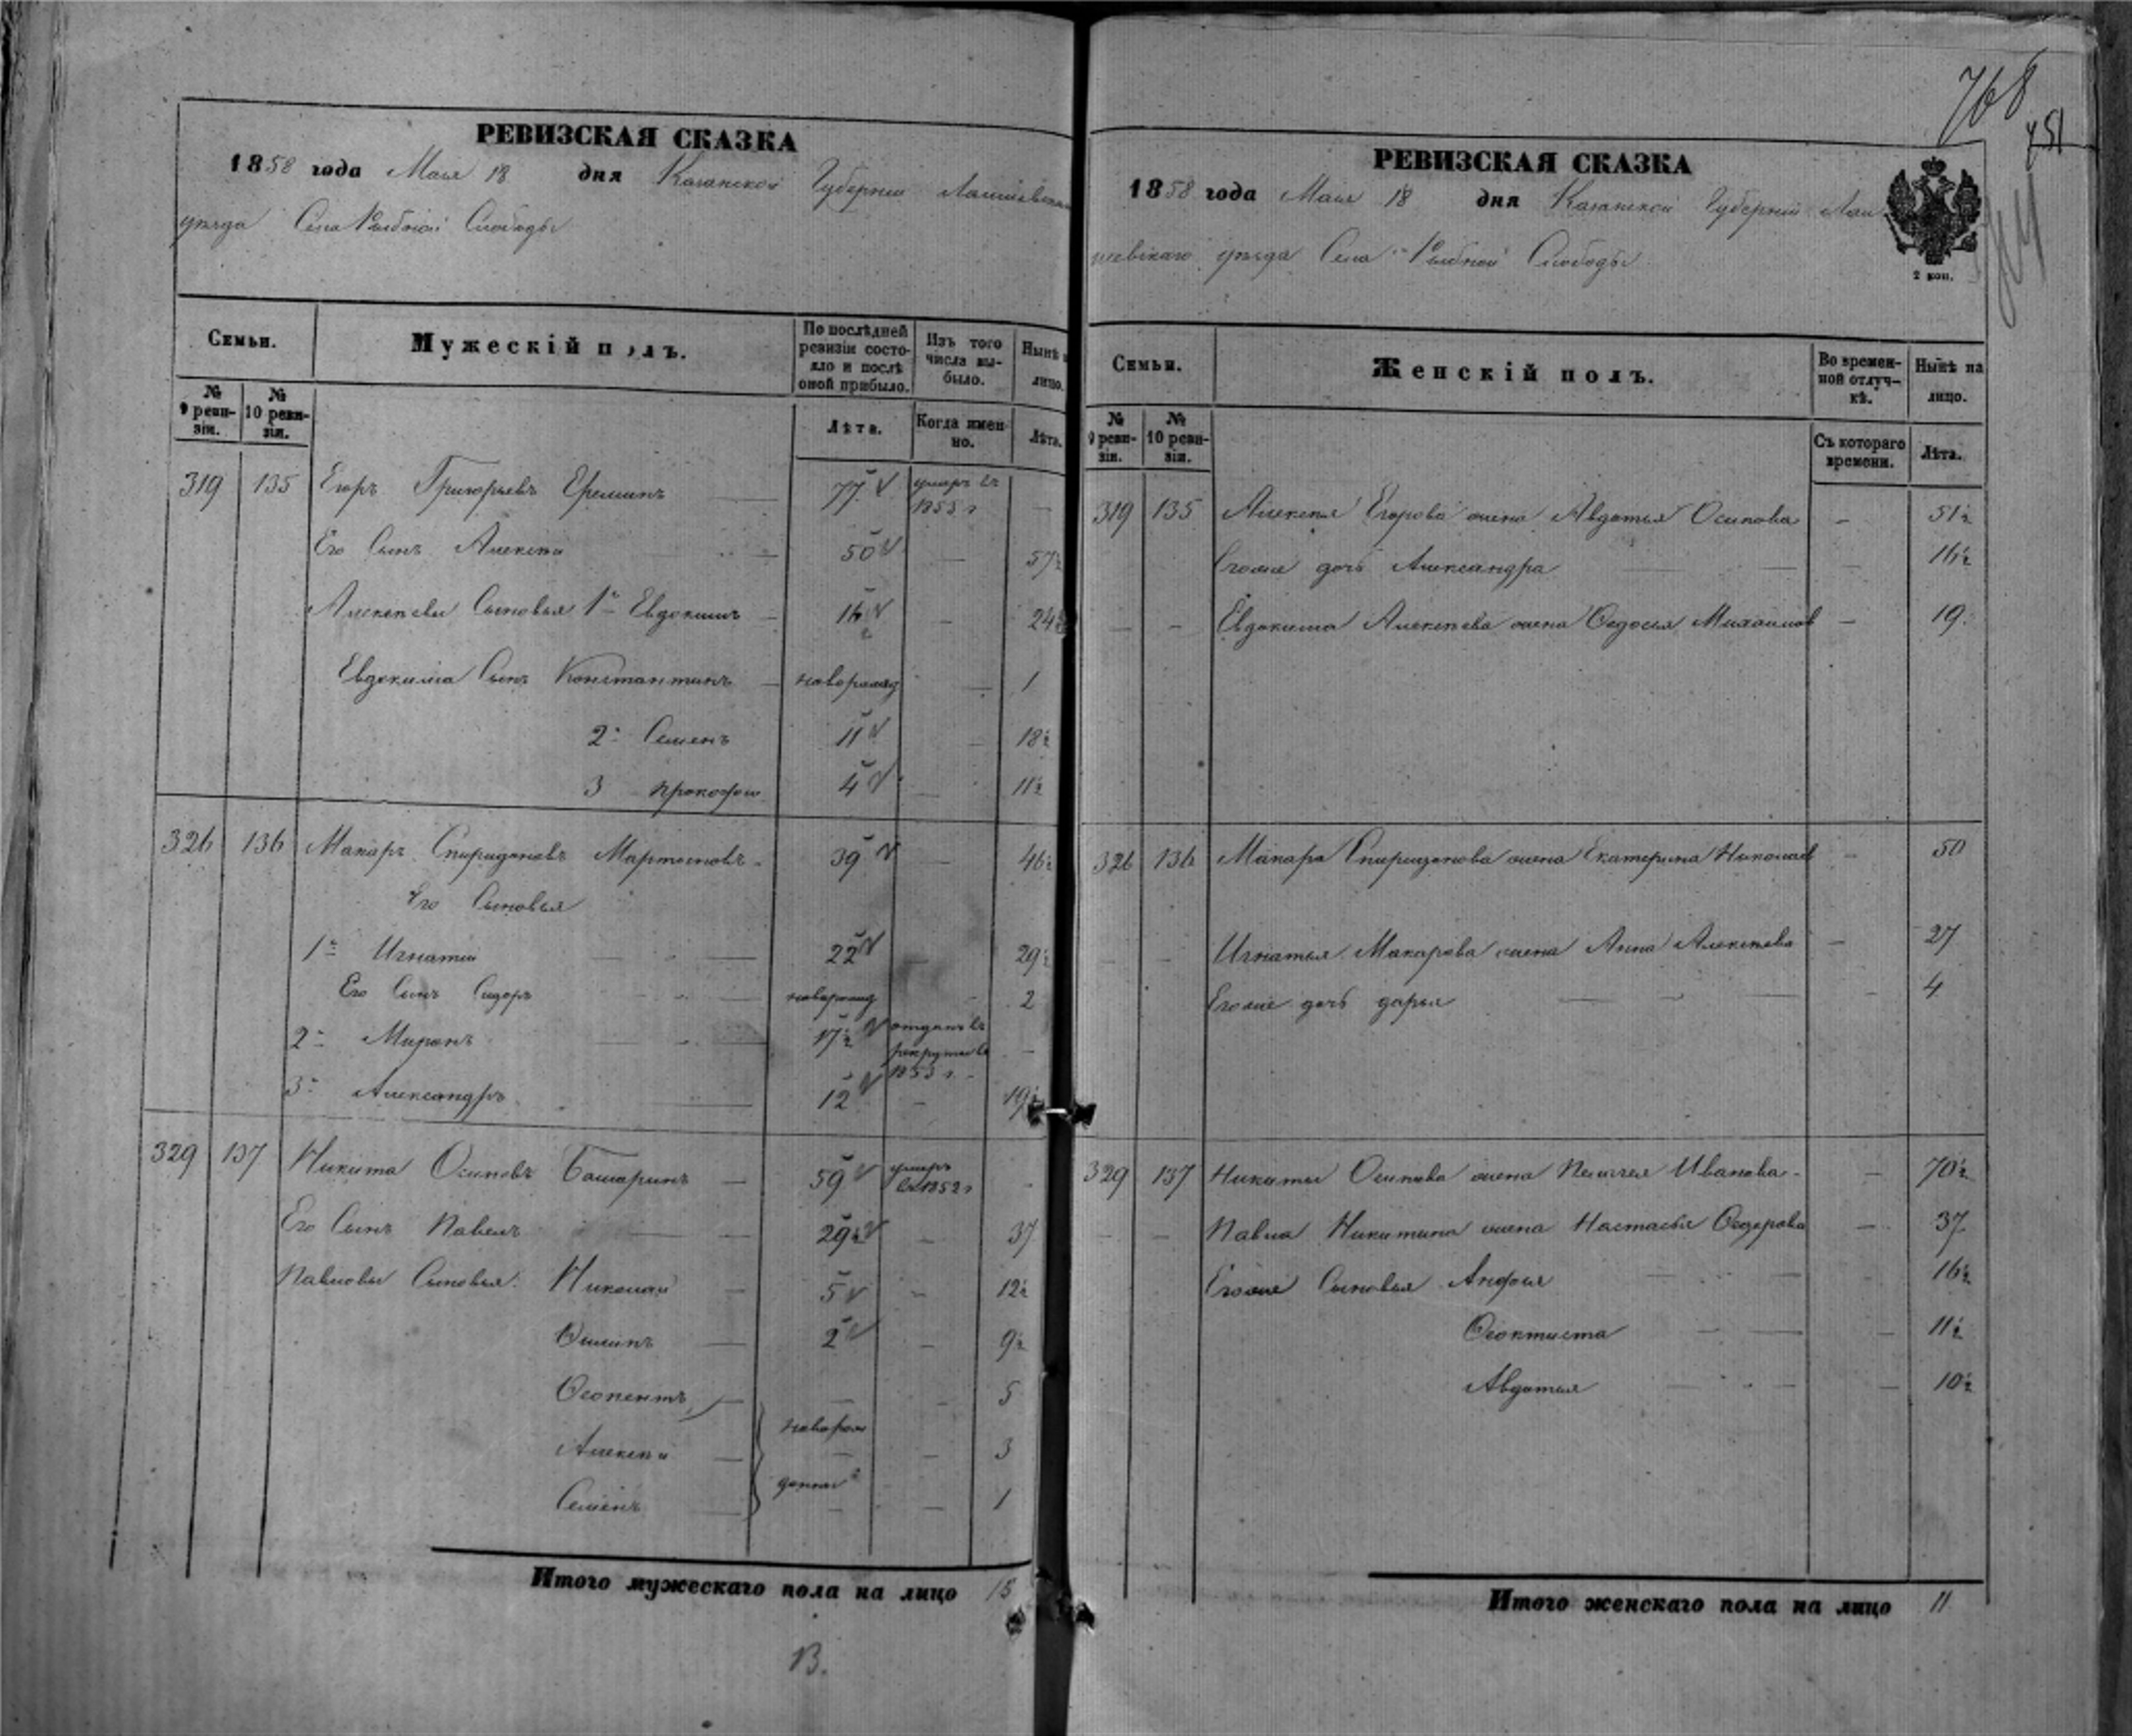 768
751
РЕВИЗСКАЯ СКАЗКА
1858 года Мая 18 дня Казанской Губернии Лаишевскаго
уѣзда Села Рыбной Слободы
Семьи.
Мужескій полъ.
По послѣдней ревизіи состояло и послѣ оной прибыло.
Изъ того числа выбыло.
Нынѣ на лицо.
№ 9 ревизіи.
№ 10 ревизіи.
Лѣта.
Когда именно.
Лѣта.
319 135 Егоръ Григорьевъ Ереминъ 77 умеръ въ 1855 г
Его Сынъ Алексѣй 50 57½
Алексѣевы Сыновья 1й Евдокимъ 16½ 24
Евдокима Сынъ Константинъ новорожд 1
2й Семенъ 11 18½
3 Прокофій 4 11½
326 136 Макаръ Спиридоновъ Мартыновъ 39 46½
Его Сыновья
1й Игнатій 22 29½
Его Сынъ Сидоръ новорожд 2
2й Миронъ 17½ отданъ въ рекруты въ 1853 г.
3й Александръ 12 19½
329 137 Никита Осиповъ Башаринъ 59 умеръ въ 1852 г
Его Сынъ Павелъ 29½ 37
Павловы Сыновья: Николай 5 12½
Филипъ 2 9½
Феопентъ 5
новорож
Алексѣй 3
денные
Семенъ 1
Итого мужескаго пола на лицо 15
В.
РЕВИЗСКАЯ СКАЗКА
1858 года Мая 18 дня Казанской Губерніи Лаи-
шевскаго уѣзда Села Рыбной Слободы
2 коп.
Семьи.
Женскій полъ.
Во временной отлучкѣ.
Нынѣ на лицо.
№ 9 ревизіи.
№ 10 ревизіи.
Съ котораго времени.
Лѣта.
319 135 Алексѣя Егорова жена Авдотья Осипова 51½
Егоже дочь Александра 16½
Евдокима Алексѣева жена Федосья Михаилов 19
326 136 Макара Спиридонова жена Екатерина Николаев 50
Игнатья Макарова жена Анна Алексѣева 27
Егоже дочь дарья 4
329 137 Никиты Осипова жена Пелагея Иванова 70½
Павла Никитина жена Настасья Федорова 37
Егоже Сыновья Анфия 16½
Феоктиста 11½
Авдотья 10½
Итого женскаго пола на лицо 11